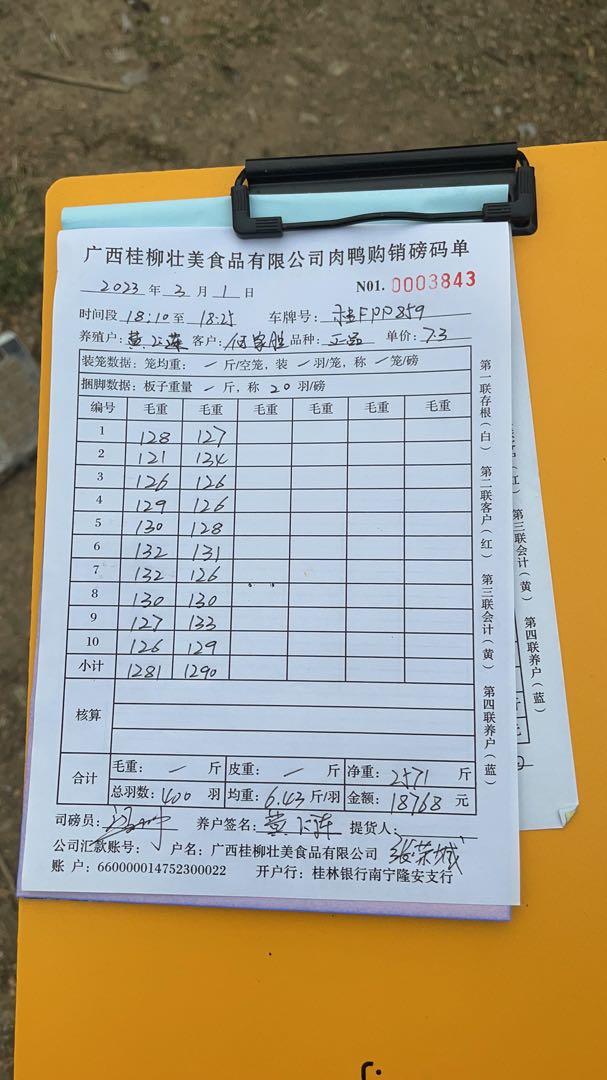 广西桂柳壮美食品有限公司肉鸭购销磅码单
2023 年 3 月 1 日 N01. 0003843
时间段 18:10 至 18:25 车牌号: 桂FPP859
养殖户: 黄 客户: 何家胜 品种: 正品 单价: 7.3
装笼数据: 笼均重: — 斤/空笼, 装 — 羽/笼, 称 — 笼/磅
捆脚数据: 板子重量 — 斤, 称 20 羽/磅
编号 毛重 毛重 毛重 毛重 毛重 毛重
1 128 127
2 121 134
3 126 126
4 129 126
5 130 128
6 132 131
7 132 126
8 130 130
9 127 133
10 126 129
小计 1281 1290
核算
合计 毛重: — 斤 皮重: — 斤 净重: 2571 斤
总羽数: 400 羽 均重: 6.43 斤/羽 金额: 18768 元
司磅员: 养户签名: 黄 提货人:
公司汇款账号: 户名: 广西桂柳壮美食品有限公司 张荣城
账 户: 660000014752300022 开户行: 桂林银行南宁隆安支行
第一联存根(白) 第二联客户(红) 第三联会计(黄) 第四联养户(蓝)
第三联会计(黄) 第四联养户(蓝)